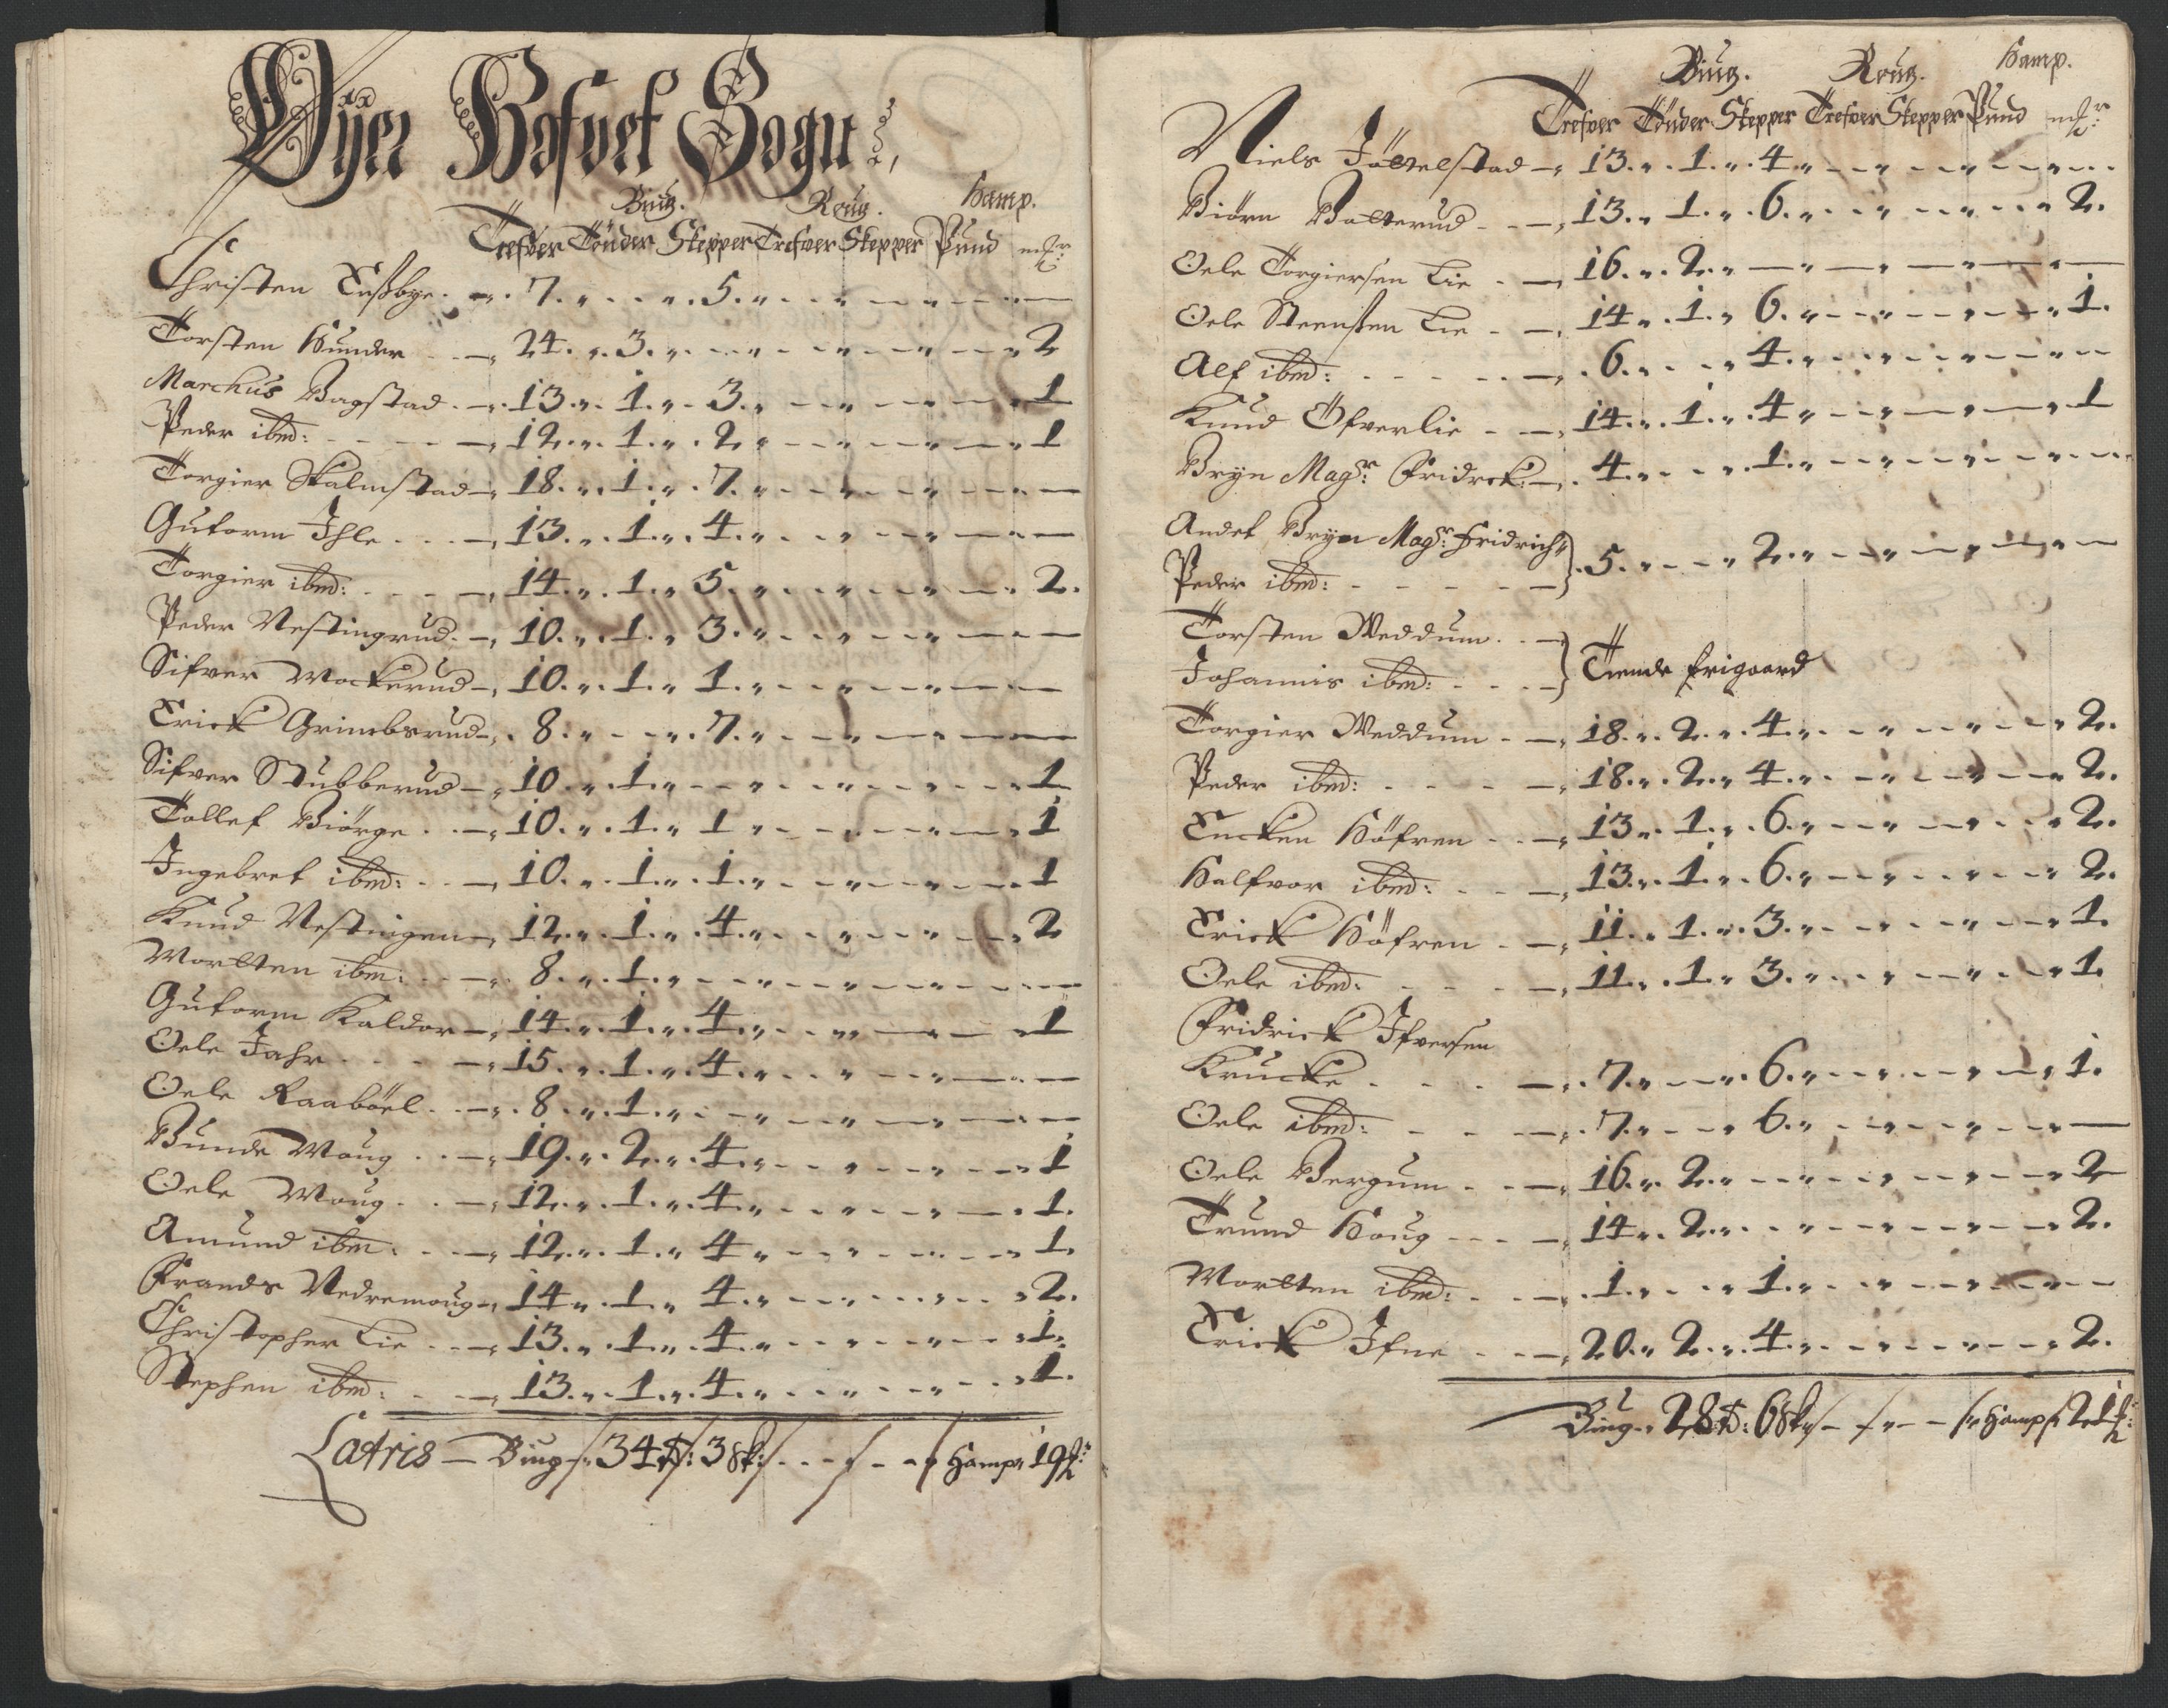 Öÿer Hofvet Sogn
Biug. Roug. Hamp.
Trefver Tönder Stepper Trefver Stepper Pund mkr:
Christen Tußbye 7. 5.
Torsten Hunder 24. 3. 2
Marchus Bagstad 13. 1. 3. 1
Peder ibid: 12. 1. 2. 1
Torgier Skalmstad 18. 1. 7.
Gutorm Ihle 13. 1. 4.
Torgier ibid: 14. 1. 5. 2.
Peder Nestingrud 10. 1. 3.
Sifver Mockerud 10. 1. 1.
Erick Grimbsrud 8. 7.
Sifver Stubberud 10. 1. 1
Tollef Biörge 10. 1. 1 1
Ingebret ibid: 10. 1. 1. 1
Knud Nestingen 12. 1. 4. 2
Mortten ibm: 8. 1.
Gutorm Kaldor 14. 1. 4. 1
Oele Jahr 15. 1. 4.
Oele Raaböel 8. 1.
Bunde Moug 19. 2. 4. 1
Oele Moug 12. 1. 4. 1.
Amund ibm 12. 1. 4 1.
Frands Nedremoug 14 1. 4. 2.
Christopher Lie 13. 1. 4. 1.
Stephen ibid: 13. 1. 4. 1.
Latris Biug 34 T: 3 sk: Hamp 19
Biug. Roug. Hamp.
Trefver Tönder Stepper Trefver Stepper Pund mkr:
Niels Jöttelstad 13. 1. 4
Biörn Batterud 13. 1. 6. 2.
Oele Torgiersen Lie 16. 2.
Oele Steensen Lie 14. 1. 6. 1.
Alf ibid: 6. 4.
Knud Öfverlie 14. 1. 4 1
Bryn Magr: Fridrck: 4. 1.
Andet Bryn Magr: Fridrich
Peder ibid: 5. 2.
Torsten Weddum
Johannis ibid: Tiende frigaard
Torgier Weddum 18. 2. 4. 2.
Peder ibid: 18. 2. 4. 2.
Encken Höfren 13. 1. 6. 2.
Halfvor ibid: 13. 1. 6. 2.
Erick Höfren 11. 1. 3. 1.
Oele ibid: 11. 1. 3. 1.
Fridrick Ifversen
Krucke 7. 6. 1.
Oele ibid: 7. 6.
Oele Bergum 16. 2. 2
Trund Houg 14. 2. 2.
Mortten ibid: 1. 1.
Erick Ifne 20. 2. 4. 2.
Biug 28 T: 6 sk Hamp 21